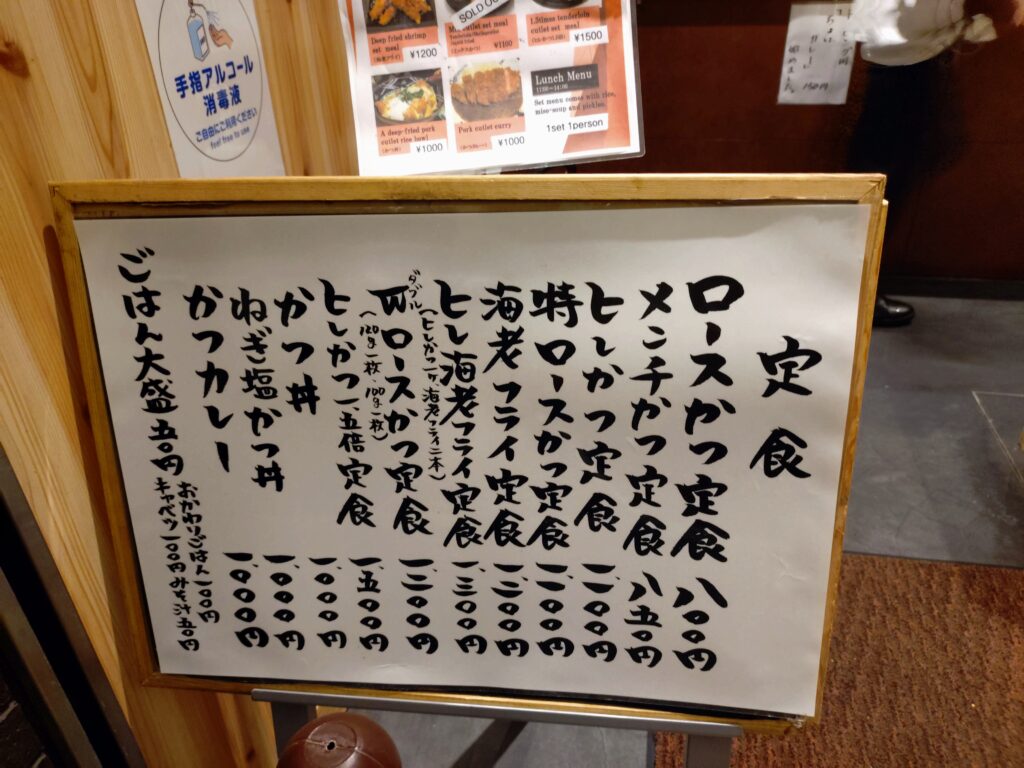 手指アルコール
消毒液
ご自由にご利用ください
feel free to use
Deep fried shrimp
set meal
¥1200
SOLD OUT
cutlet set meal
¥1100
1.5times tenderloin
cutlet set meal
¥1500
A deep-fried pork
cutlet rice bowl
¥1000
Pork cutlet curry
¥1000
Lunch Menu
Set menu comes with rice,
miso-soup and pickles.
1set 1person
カレー
始めました。
定食
ロースかつ定食 八〇〇円
メンチかつ定食 八五〇円
ヒレかつ定食 一、一〇〇円
特ロースかつ定食 一、一〇〇円
海老フライ定食 一、二〇〇円
ヒレ海老フライ定食 一、三〇〇円
(ヒレかつ一ヶ、海老フライ二本)
ダブル
Wロースかつ定食 一、二〇〇円
(120g一枚、100g一枚)
ヒレかつ一、五倍定食 一、五〇〇円
かつ丼 一、〇〇〇円
ねぎ塩かつ丼 一、〇〇〇円
かつカレー 一、〇〇〇円
ごはん大盛五〇円
おかわりごはん一〇〇円
キャベツ一〇〇円みそ汁五〇円